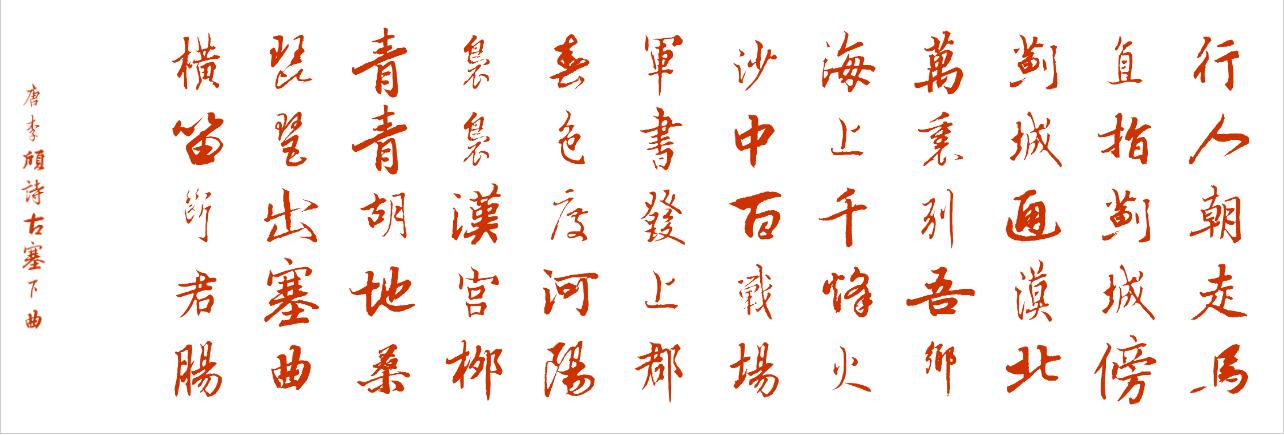 行人朝走馬
直指薊城傍
薊城通漠北
萬裏別吾鄉
海上千烽火
沙中百戰場
軍書發上郡
春色度河陽
裊裊漢宮柳
青青胡地桑
琵琶出塞曲
橫笛斷君腸
唐李頎詩古塞下曲